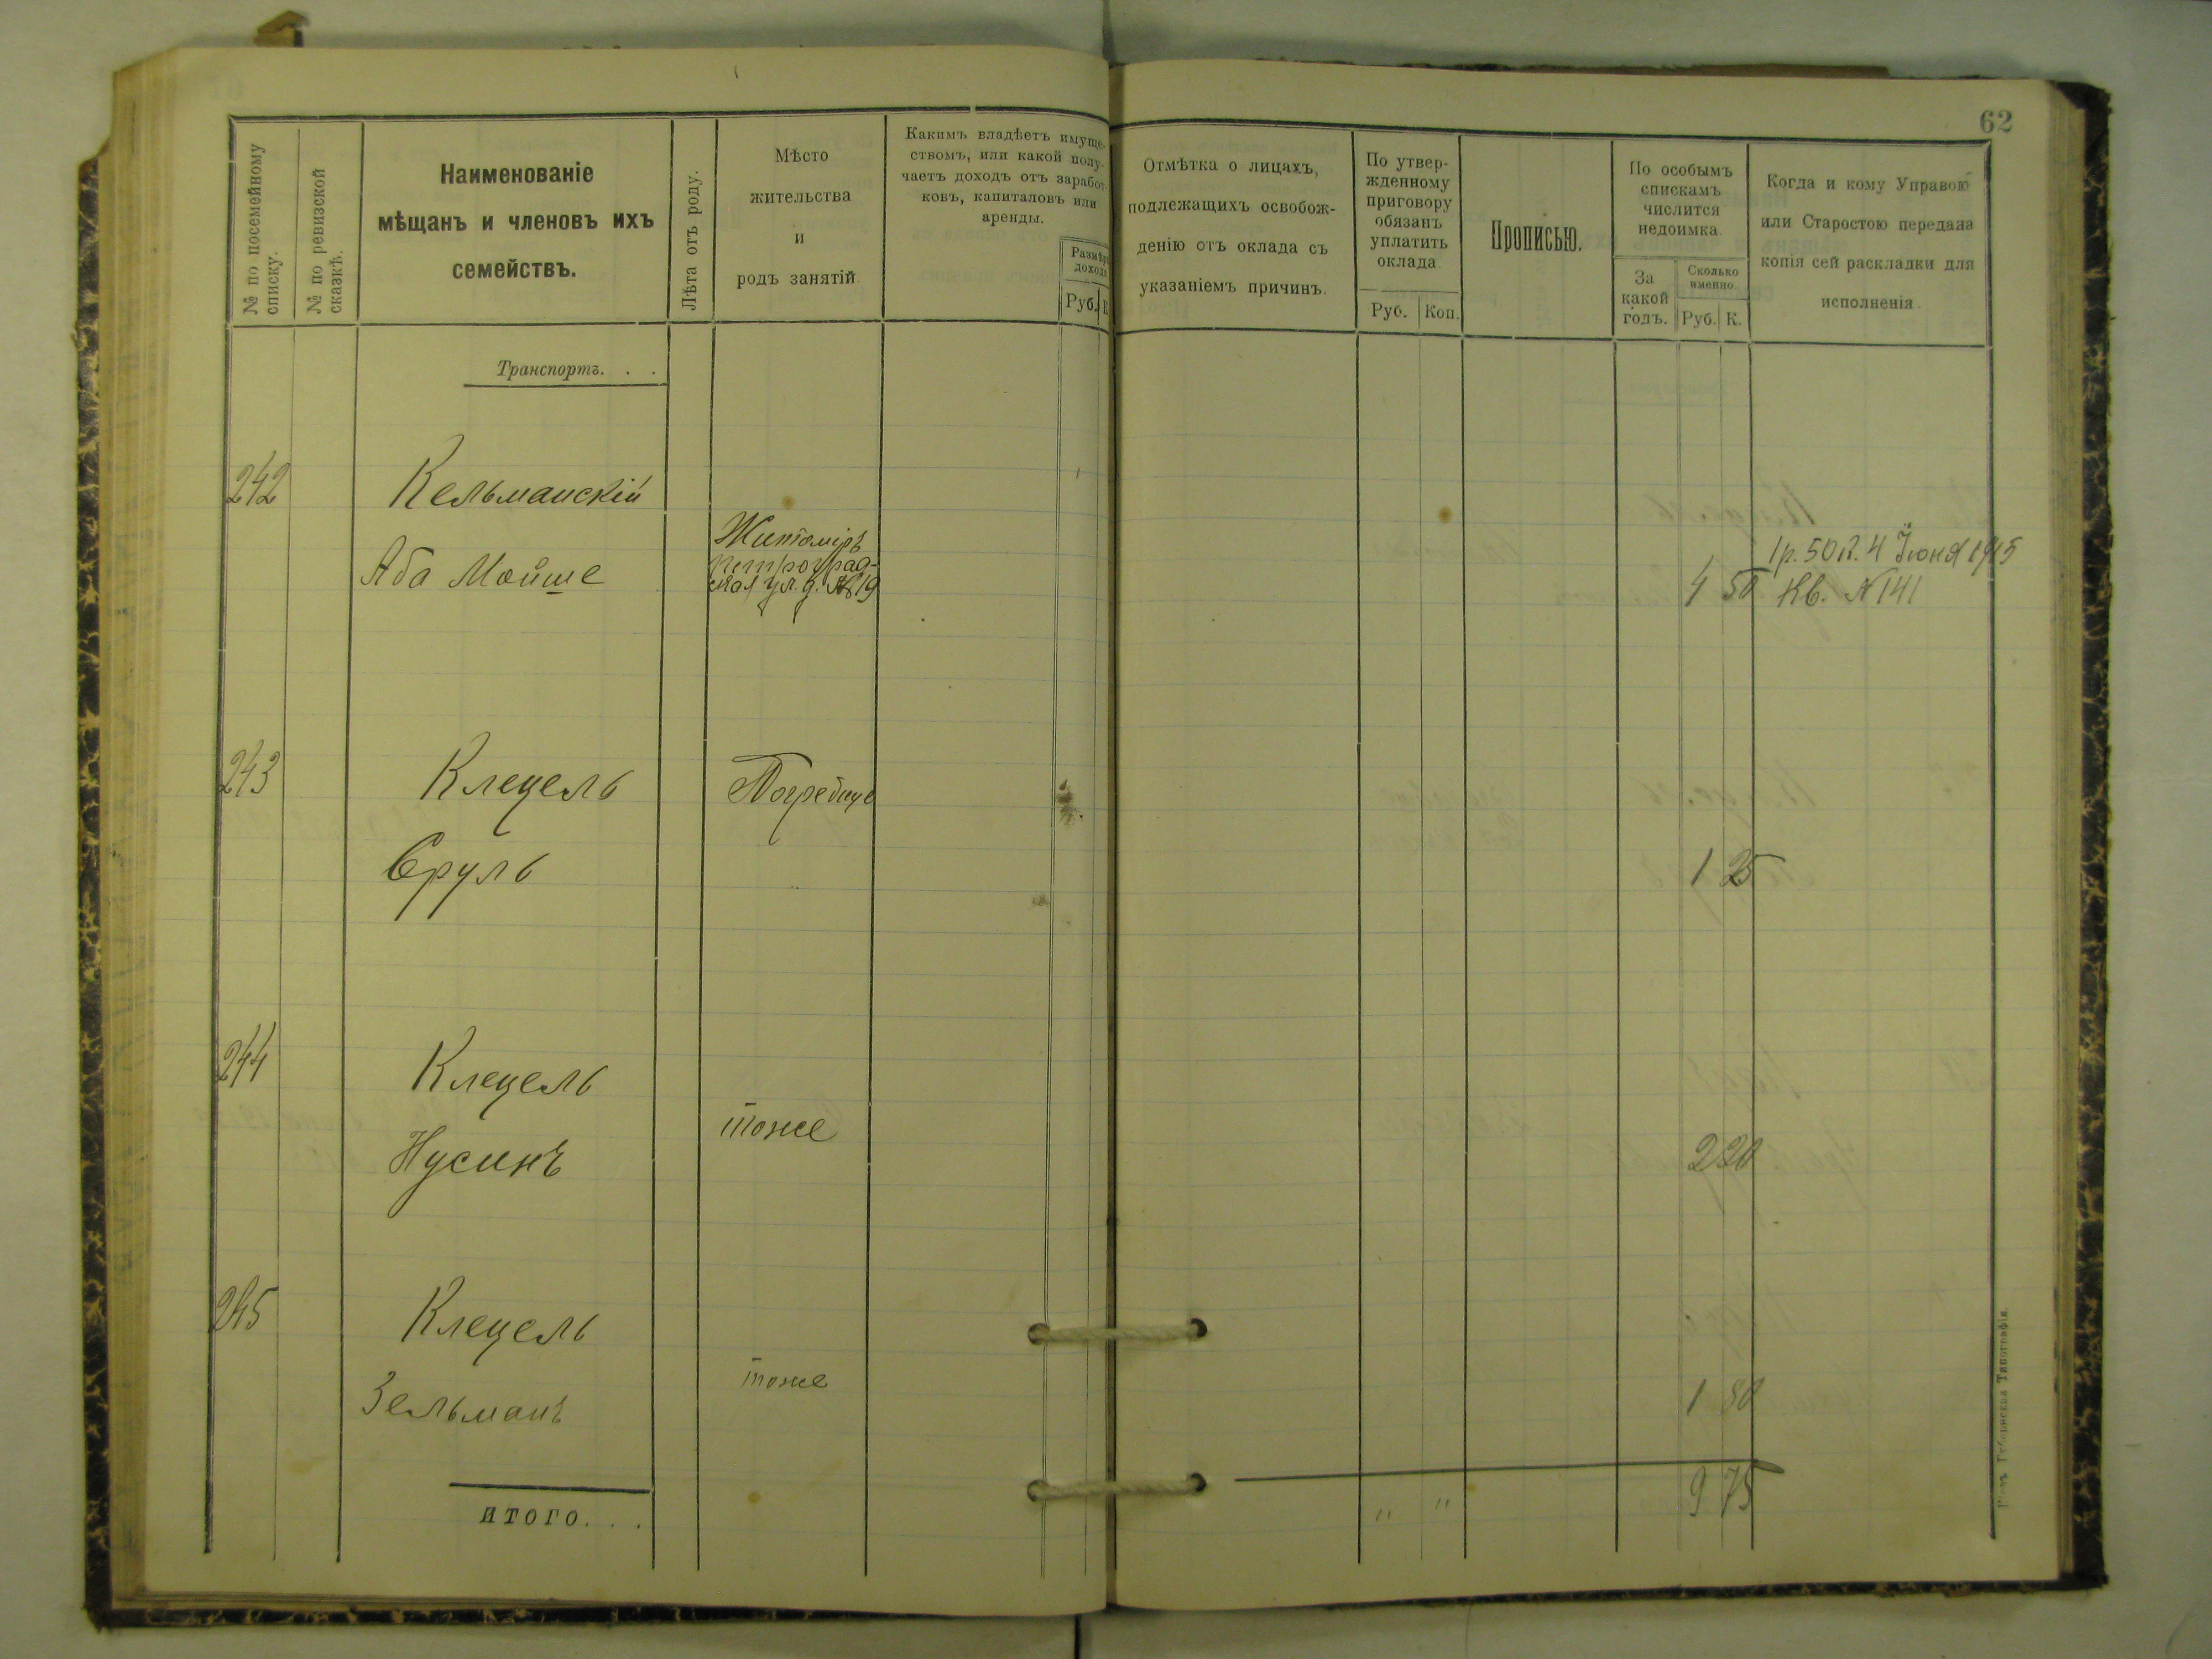 62
№ по посемейному
списку.
№ по ревизской
сказкѣ.
Наименованіе
мѣщанъ и членовъ ихъ
семействъ.
Лѣта отъ роду.
Мѣсто
жительства
и
родъ занятій.
Какимъ владѣетъ имуще-
ствомъ, или какой полу-
чаетъ доходъ отъ заработ-
ковъ, капиталовъ или
аренды.
Размѣръ
дохода
Руб.
К.
Отмѣтка о лицахъ,
подлежащихъ освобож-
денію отъ оклада съ
указаніемъ причинъ.
По утвер-
жденному
приговору
обязанъ
уплатить
оклада
Руб. Коп.
Прописью.
По особымъ
спискамъ
числится
недоимка.
За
какой
годъ.
Сколько
именно.
Руб. К.
Когда и кому Управою
или Старостою передана
копія сей раскладки для
исполненія.
Транспортъ. . .
242 Кельманскій
Аба Мойше
Житоміръ
Петроград-
ская ул. д. № 19
4 50
1р. 50к. 4 Іюня 1915
Кв. № 141
243 Клецель Погребище
Сруль 1 25
244 Клецель
Нусинъ тоже 2 20
245 Клецель
Зельманъ тоже 1 80
ИТОГО. . . " " 9 75
Губернская Типографія.